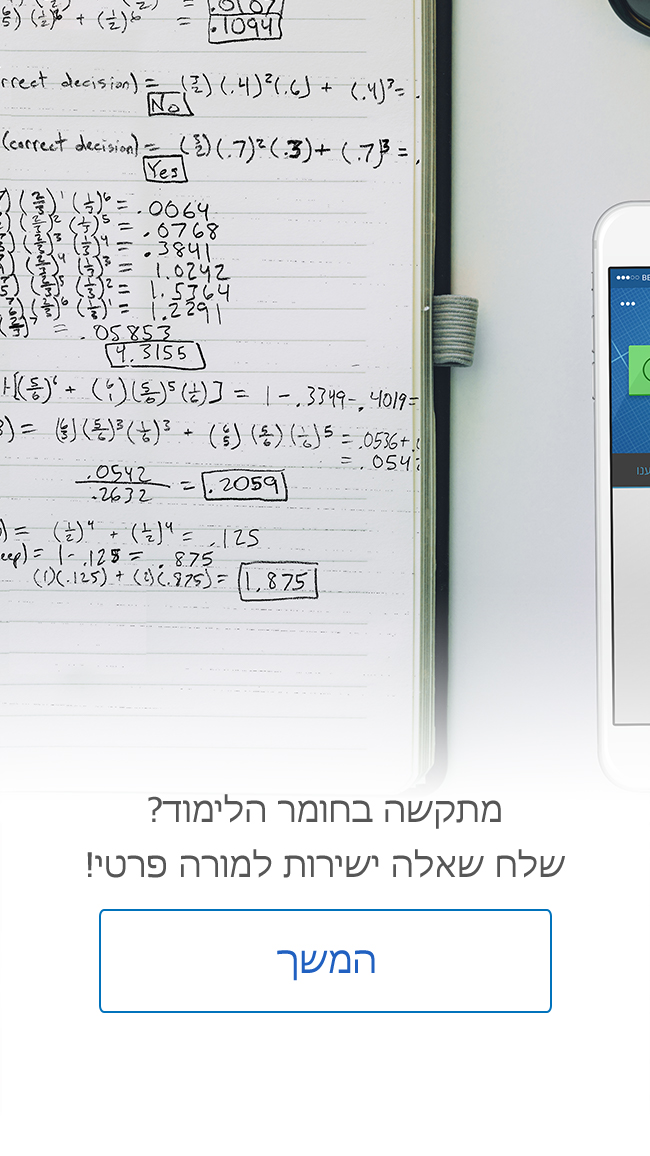 .0107
6/5) (1/2)^6 + (1/2)^6 = .1094
rrect decision) = (3/2)(.4)²(.6) + (.4)³=.
No
(correct decision) = (3/2)(.7)²(.3)+ (.7)³ = .
Yes
(1/3)^6 = .0064
(1/3)^5 = .0768
(1/3)^4 = .3841
(1/3)^3 = 1.0242
(1/3)^2 = 1.5764
(1/3)^1 = 1.2291
= .05853
4.3155
1-[(5/6)^6 + (6/1)(5/6)^5(1/6)] = 1-.3349-.4019=
3) = (6/3)(5/6)^3(1/6)^3 + (6/5)(5/6)(1/6)^5 = .0536+.0
= .0542
.0542/.2632 = .2059
) = (1/2)^4 + (1/2)^4 = .125
eep) = 1-.125 = .875
(1)(.125) + (2)(.875) = 1.875
מתקשה בחומר הלימוד?
שלח שאלה ישירות למורה פרטי!
המשך